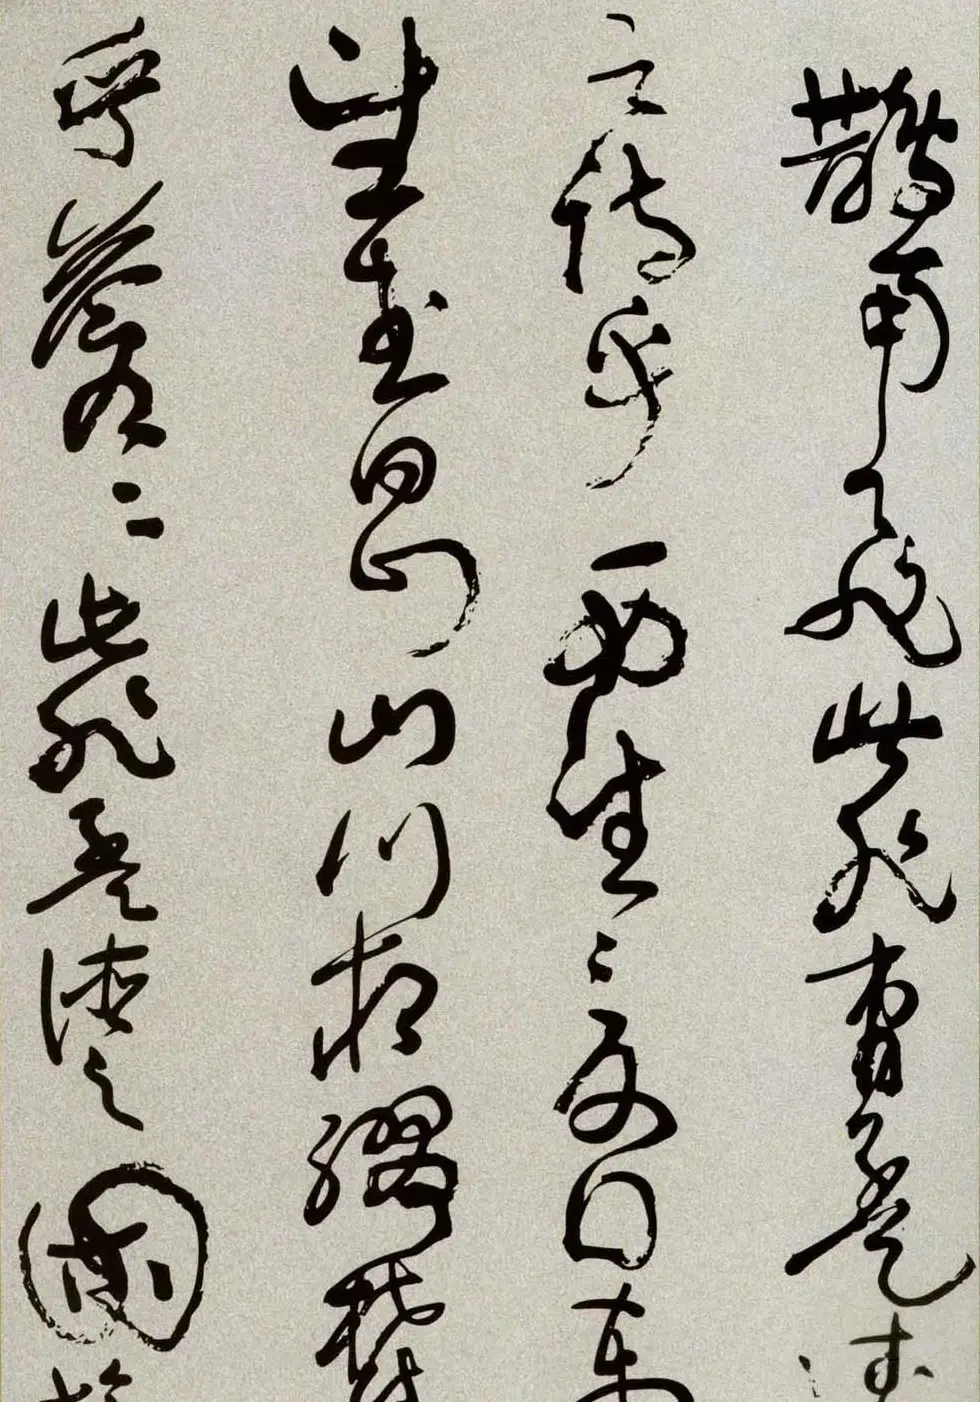 鵲南飛此非曹孟德
之詩乎西望夏口東
望武昌山川相繆鬱
乎蒼〻此非孟德之困於